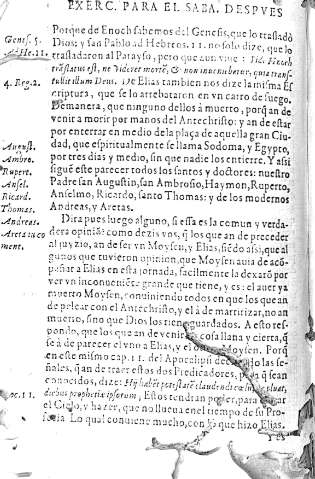 EXERC. PARA EL SABA. DESPVES
Porque de Enoch sabemos del Genesis, que lo traslado
Genes. 5.
Dios; y san Pablo ad Hebreos. 11. no solo dize, que lo
Ad He. 11.
trasladaron al Parayso, pero que aun viue:
translatus est, ne videret mortẽ, & non inueniebatur, quia trans
tulit
Deus. De Elias tambien nos dize la misma Es
4. Reg. 2.
criptura, que se lo arrebataron en vn carro de fuego.
Demanera, que ninguno dellos à muerto, porq̃ an de
venir a morir por manos del Antechristo: y an de estar
por enterrar en medio de la plaça de aquella gran Ciu-
dad, que espiritualmente se llama Sodoma, y Egypto,
por tres dias y medio, sin que nadie los entierre. Y assi
August.
sigue este parecer todos los santos y doctores: nuestro
Ambro.
Padre san Augustin, san Ambrosio, Haymon, Ruperto,
Rupert.
Ansel.
Anselmo, Ricardo, santo Thomas: y de los modernos
Ricard.
Andreas, y Aretas.
Thomas.
Andreas.
Dira pues luego alguno, si essa es la comun y verda-
Areta in co
ment.
dera opiniõ: como dezis vos, q̃ los que an de preceder
al juyzio, an de ser vn Moysen, y Elias, siẽdo assi, que al
gunos que tuvieron opinion, que Moysen auia de acõ-
pañar a Elias en esta jornada, facilmente la dexarõ por
ver vn inconueniẽte grande que tiene, y es: el auer ya
muerto Moysen, conuiniendo todos en que los que an
de pelear con el Antechristo, y el à de martirizar, no an
muerto, sino que Dios los tiene guardados. A esto res-
pondo, que los que an de venir es cosa llana y cierta, q̃
se à de parecer el vno a Elias, y el otro a Moysen. Porq̃
en este mismo cap. 11. del Apocalipsi las se-
ñales, q̃ an de traer estos dos Predicadores, para q̃ sean
conocidos, dize: Hij habẽt potestatẽ claudendi cœlum, ne pluat,
diebus prophetiæ ipsorum, Estos tendrán poder, para cerrar
el Cielo, y hazer, que no llueua en el tiempo de su Pro-
fecia. Lo qual conuiene mucho, con lo que hizo Elias.